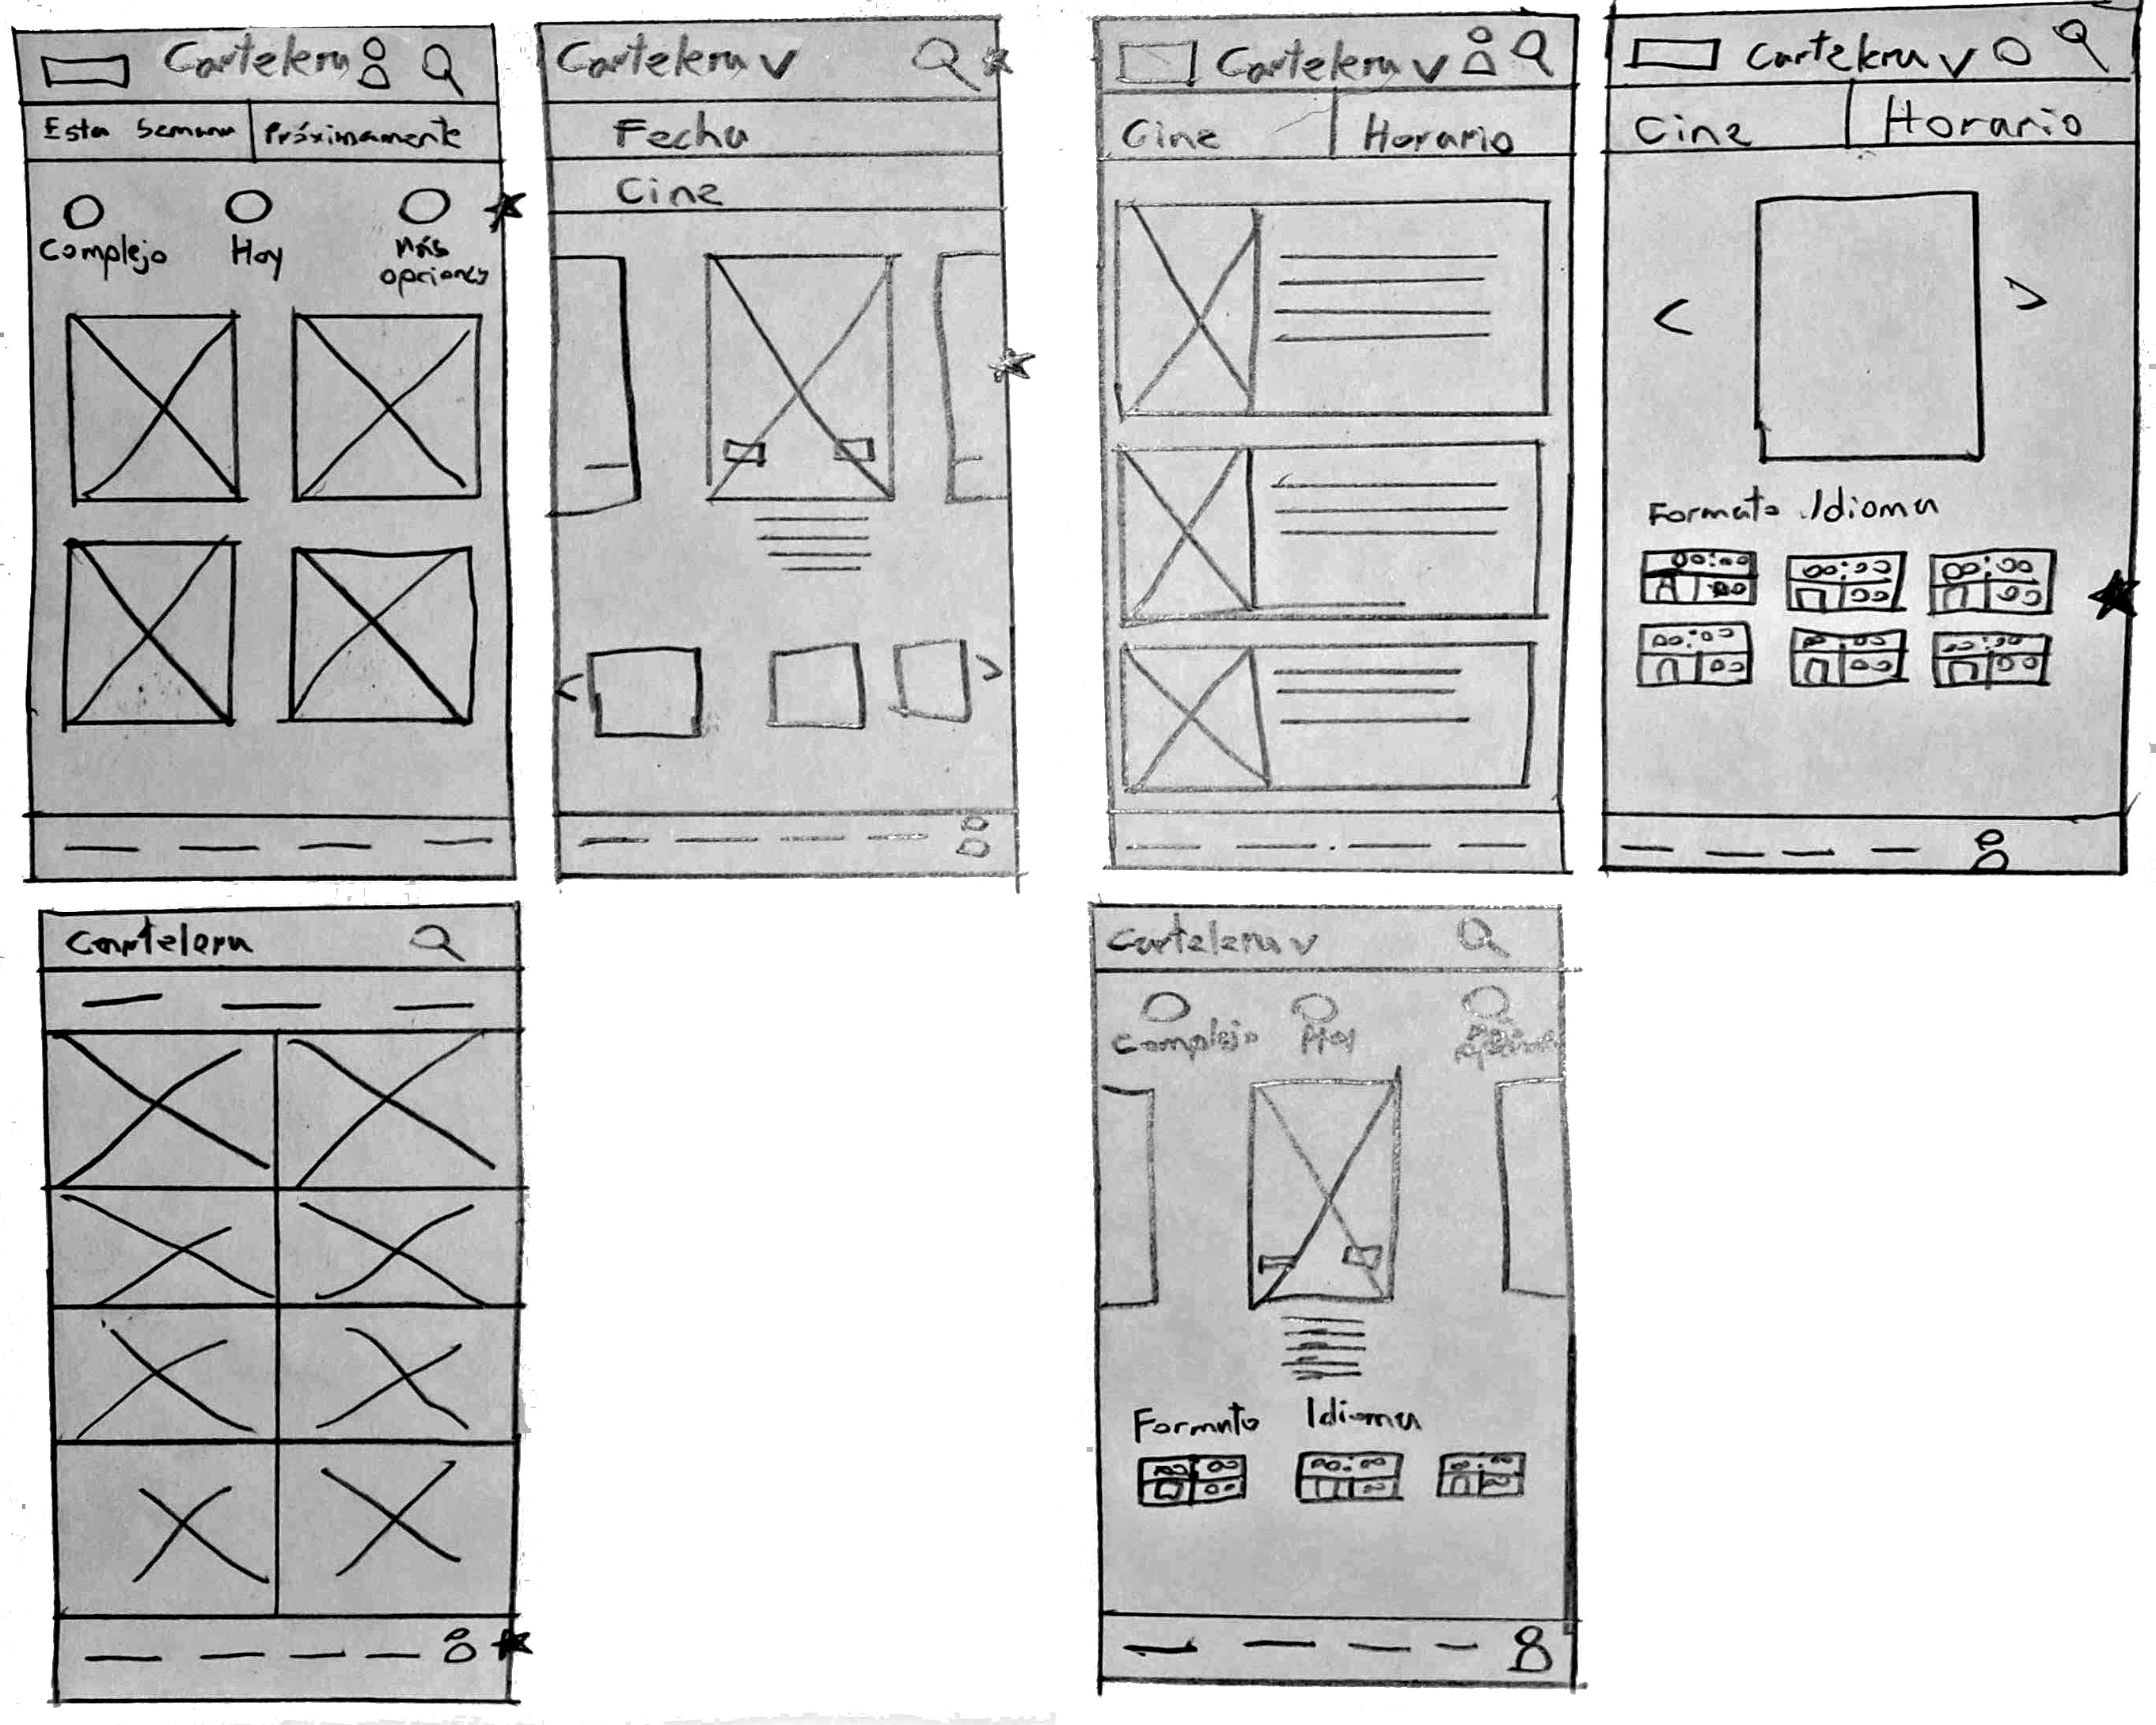 Cartelera
Esta Semana Próximamente
Complejo Hoy Más
opciones
Cartelera
Fecha
Cine
Cartelera
Cine Horario
Cartelera
Cine Horario
Formato Idioma
00:00 00:00 00:00
00:00 00:00 00:00
Cartelera
Cartelera
Complejo Hoy
Formato Idioma
00:00 00:00